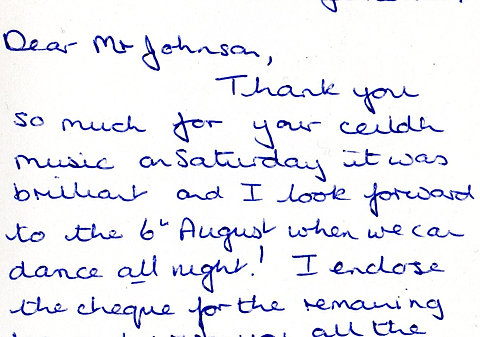 Dear Mr Johnson,
Thank you
so much for your ceildh
music on Saturday it was
brilliant and I look forward
to the 6th August when we can
dance all night! I enclose
the cheque for the remaining
you all the